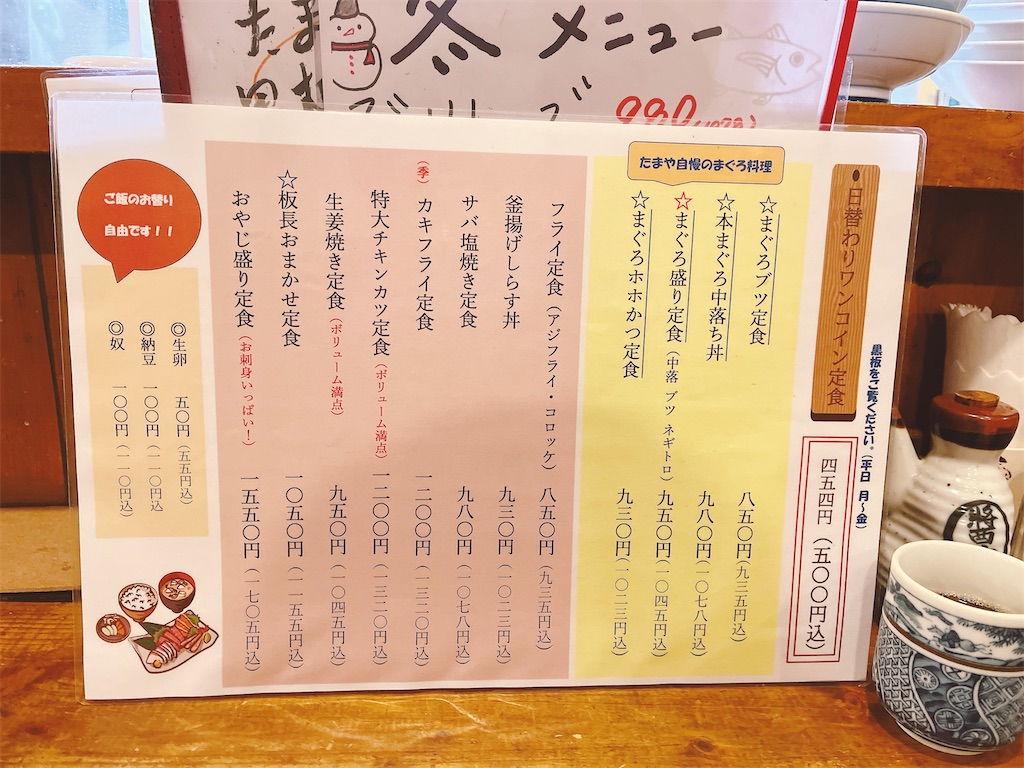 冬メニュー
日替わりワンコイン定食
黒板をご覧ください。(平日 月~金)
四五四円(五〇〇円込)
たまや自慢のまぐろ料理
☆まぐろブツ定食 八五〇円(九三五円込)
☆本まぐろ中落ち丼 九八〇円(一〇七八円込)
☆まぐろ盛り定食(中落 ブツ ネギトロ) 九五〇円(一〇四五円込)
☆まぐろホホかつ定食 九三〇円(一〇二三円込)
フライ定食(アジフライ・コロッケ) 八五〇円(九三五円込)
釜揚げしらす丼 九三〇円(一〇二三円込)
サバ塩焼き定食 九八〇円(一〇七八円込)
(季)カキフライ定食 一二〇〇円(一三二〇円込)
特大チキンカツ定食(ボリューム満点) 一二〇〇円(一三二〇円込)
生姜焼き定食(ボリューム満点) 九五〇円(一〇四五円込)
☆板長おまかせ定食 一〇五〇円(一一五五円込)
おやじ盛り定食(お刺身いっぱい!) 一五五〇円(一七〇五円込)
ご飯のお替り
自由です!!
◎生卵 五〇円(五五円込)
◎納豆 一〇〇円(一一〇円込
◎奴 一〇〇円(一一〇円込)